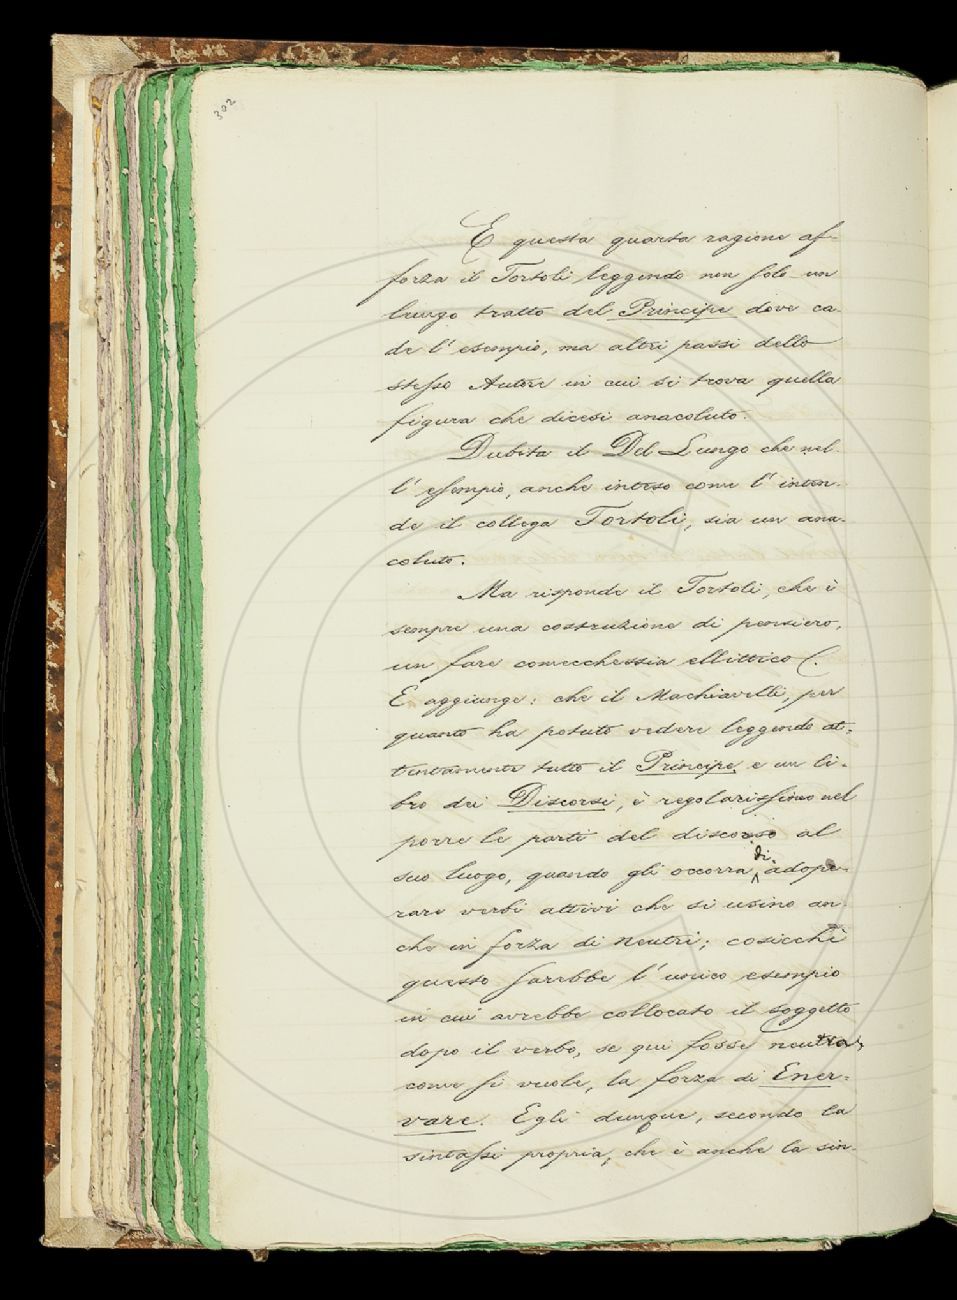 302
E questa quarta ragione af-
forza il Tortoli leggendo non solo un
lungo tratto del Principe dove ca-
de l'esempio, ma altri passi dello
stesso Autore in cui si trova quella
figura che dicesi anacoluto.
Dubita il Del Lungo che nel-
l'esempio, anche inteso come l'inten-
de il collega Tortoli, sia un ana-
coluto.
Ma risponde il Tortoli, che è
sempre una costruzione di pensiero,
un fare comecchessia ellittico (.
E aggiunge: che il Machiavelli, per
quanto ha potuto vedere leggendo at-
tentamente tutto il Principe e un li-
bro dei Discorsi, è regolarissimo nel
porre le parti del discorso al
suo luogo, quando gli occorra di adope-
rare verbi attivi che si usino an-
che in forza di neutri; cosicchè
questo sarebbe l'unico esempio
in cui avrebbe collocato il soggetto
dopo il verbo, se qui fosse neutra,
come si vuole, la forza di Ener-
vare. Egli dunque, secondo la
sintassi propria, che è anche la sin-